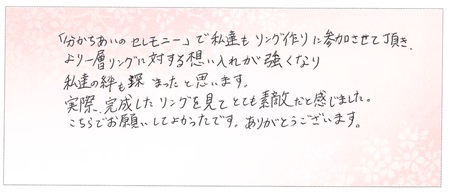 「分かちあいのセレモニー」で私達もリング作りに参加させて頂き、
より一層リングに対する想い入れが強くなり
私達の絆も深まったと思います。
実際、完成したリングを見てとても素敵だと感じました。
こちらでお願いしてよかったです。ありがとうございます。